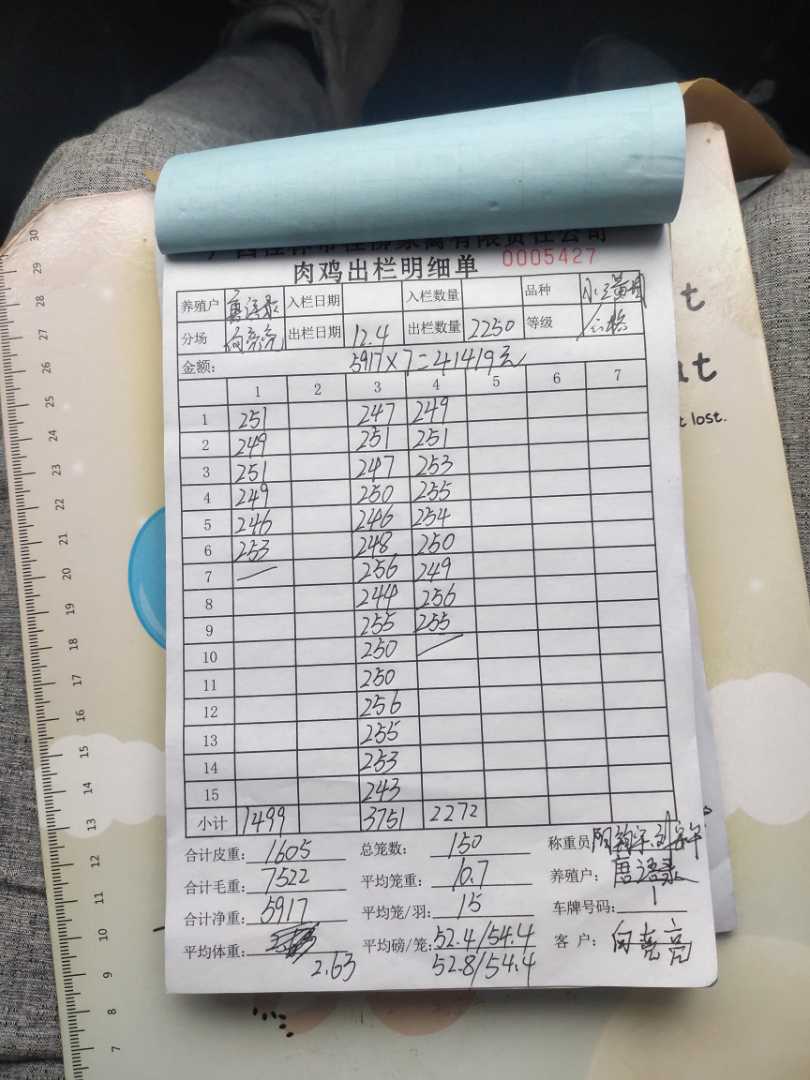 肉鸡出栏明细单 0005427
养殖户 唐语录 入栏日期 入栏数量 品种
分场 向亮亮 出栏日期 12.4 出栏数量 2250 等级
金额: 5917×7=41419元
1 2 3 4 5 6 7
1 251 247 249
2 249 251 251
3 251 247 253
4 249 250 255
5 246 246 254
6 253 248 250
7 256 249
8 244 256
9 255 255
10 250
11 250
12 256
13 255
14 253
15 243
小计 1499 3751 2272
合计皮重: 1605 总笼数: 150 称重员
合计毛重: 7522 平均笼重: 10.7 养殖户: 唐语录
合计净重: 5917 平均笼/羽: 15 车牌号码:
平均体重: 2.63 平均磅/笼: 52.4/54.4 客户: 向亮亮
52.8/54.4
30
29
28
27
26
25
24
23
22
21
20
19
18
17
16
15
14
13
12
11
10
9
8
7
t lost.